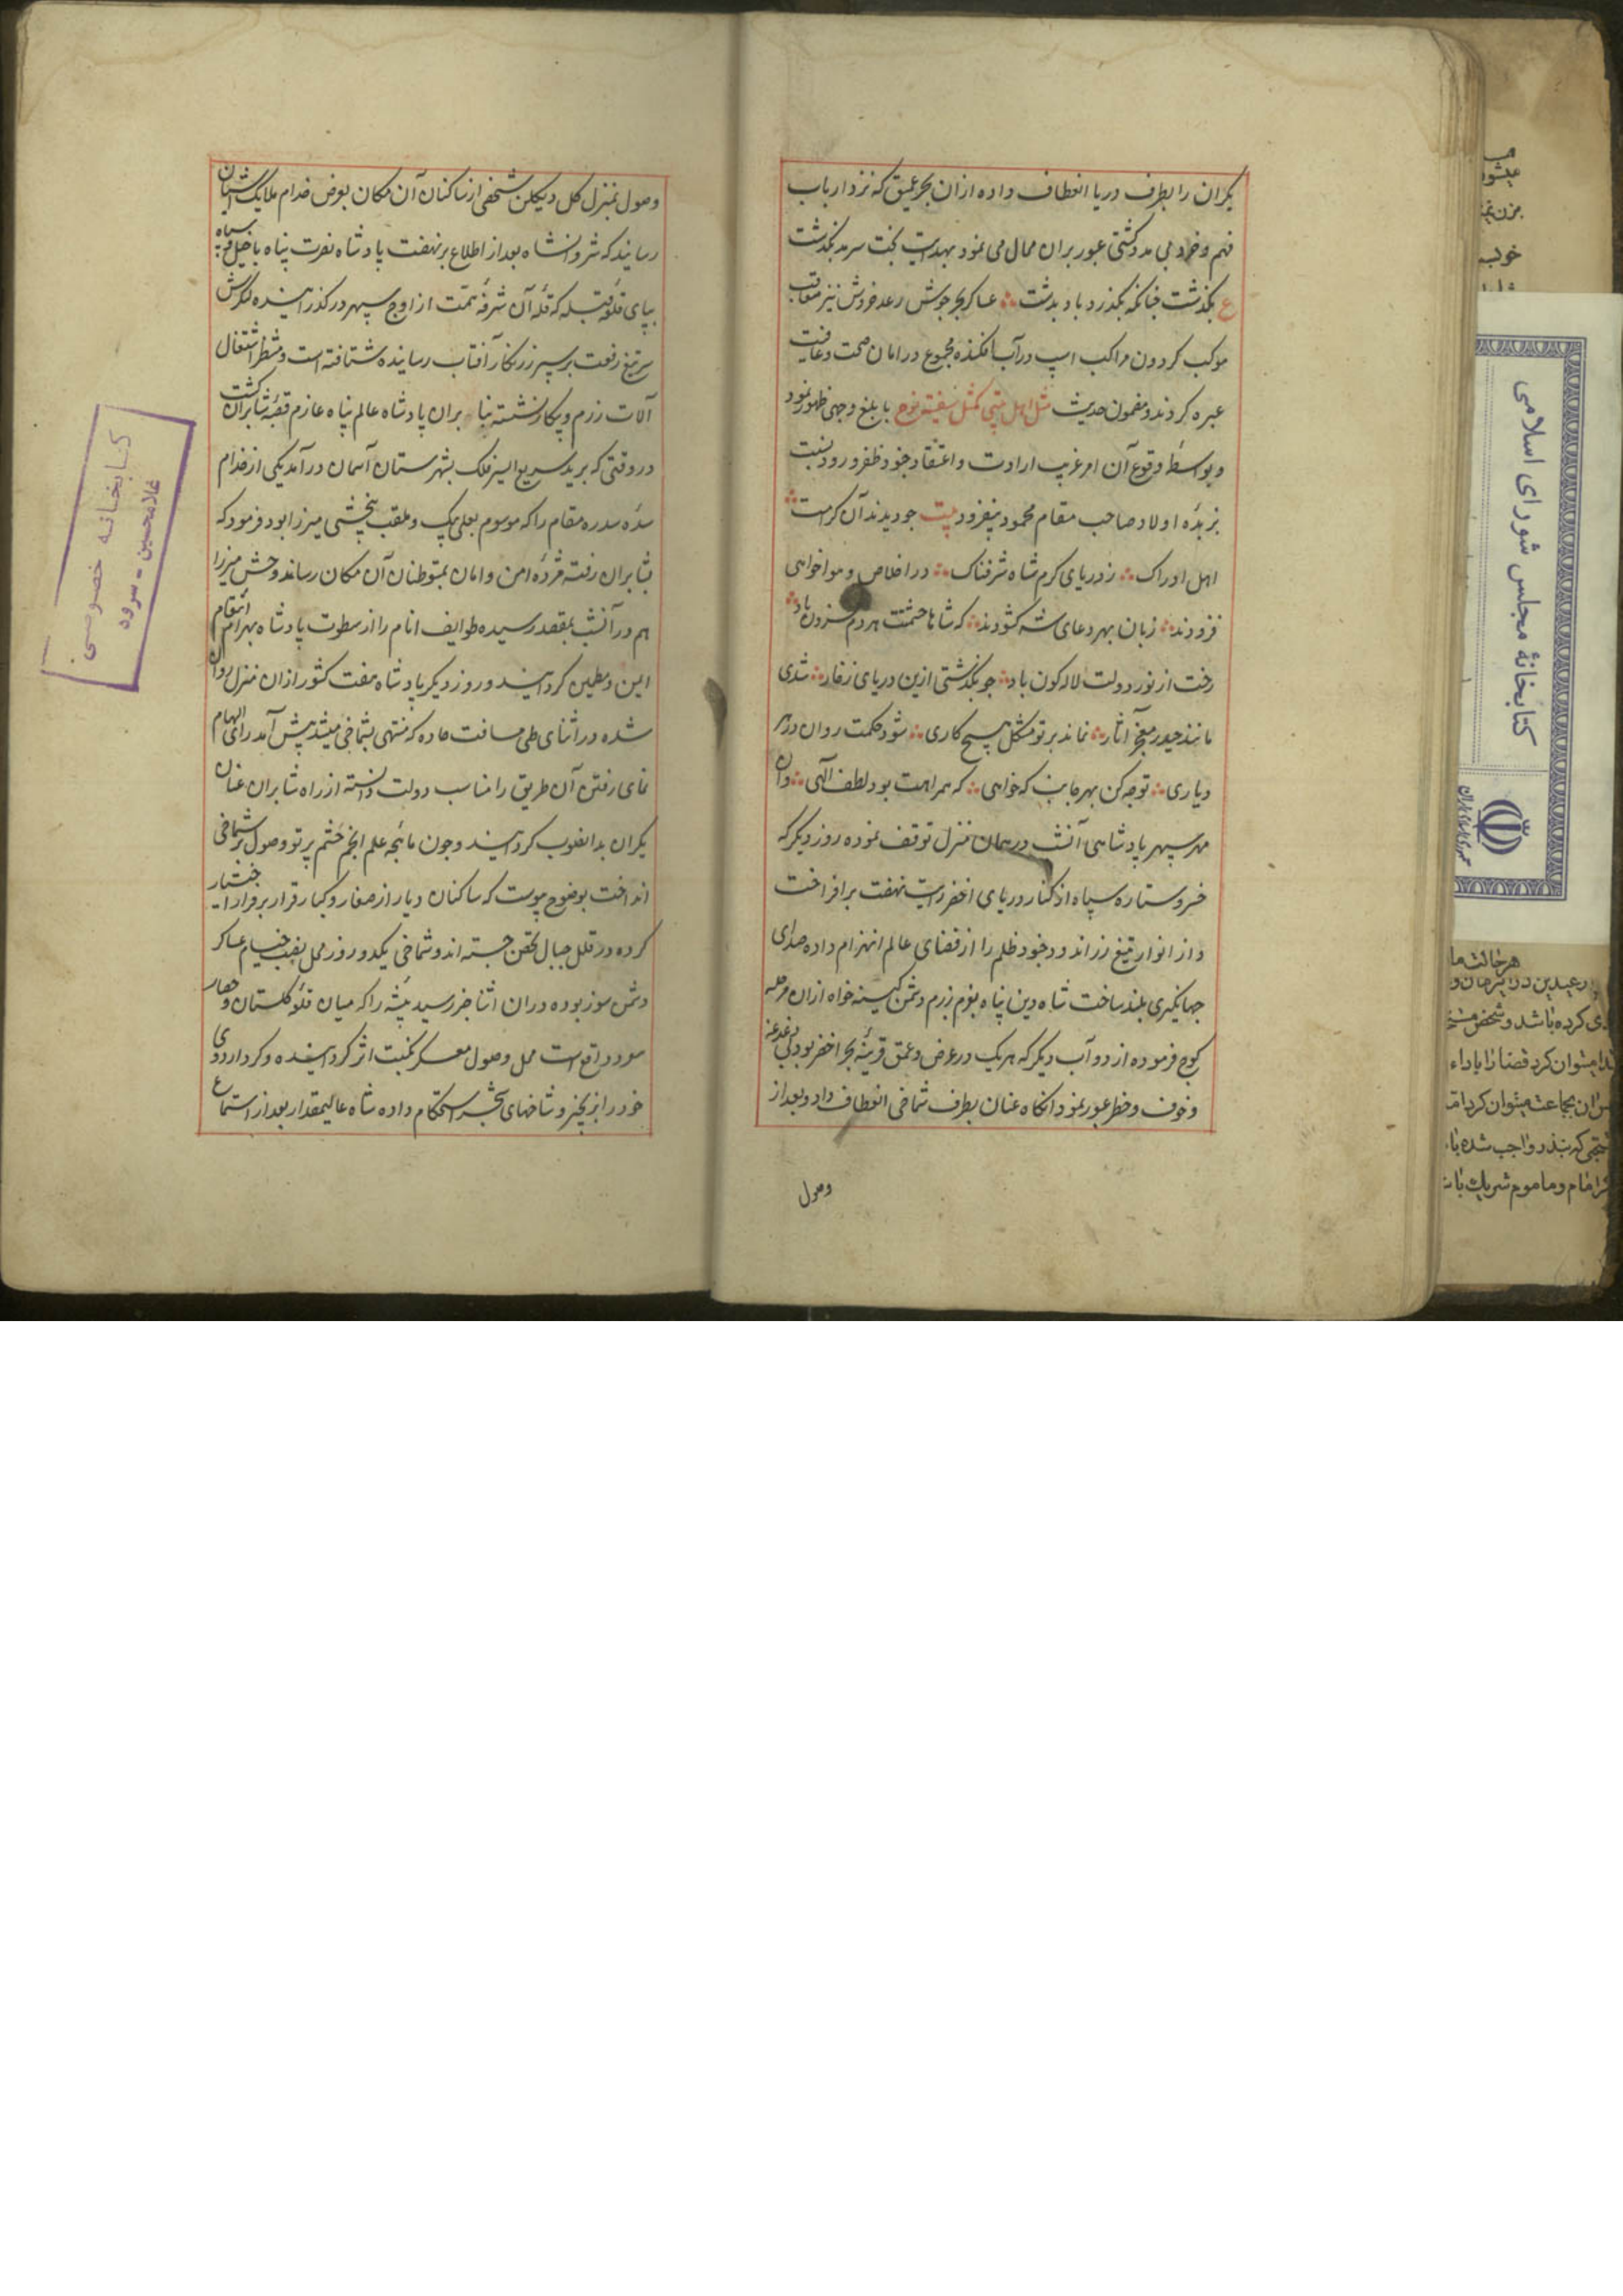 یکران را بطرف دریا انعطاف داده ازان بحر عمیق که نزد ارباب
فهم و خرد بی مدد کشتی عبور بران محال می نمود بهدایت بخت سرمد بگذشت
ع بگذشت چنانکه بگذرد باد بدشت عساکر بحر جوش رعد خروش نیز متعاقب
موکب کردون مراکب اسپ در آب افکنده مجموع در امان صحت و عافیت
عبره کردند و مضمون حدیث مثل اهل بیتی کمثل سفینة نوح بابلغ وجهی ظهور نمود
و بواسطه وقوع آن امر غریب ارادت و اعتقاد جنود ظفر ورود نسبت
بزبده اولاد صاحب مقام محمود بیفزود بیت جو دیدند آن کرامت
اهل ادراک ز دریای کرم شاه شرفناک در اخلاص و هواخواهی
فزودند زبان بهر دعای شه کشودند که شاها حشمتت هر دم فزون باد
رخت از نور دولت لاله کون باد جو بگذشتی ازین دریای زخار شدی
مانند حیدر معجز آثار نماند بر تو مشکل هیچ کاری شود حکمت روان در هر
دیاری توجه کن بهر جانب که خواهی که همراهت بود لطف الهی وان
مهر سپهر پادشاهی آنشب در همان منزل توقف نموده روز دیگر که
خسرو ستاره سپاه از کنار دریای اخضر رایت نهضت برافراخت
و از انوار تیغ زراندود جنود ظلم را از فضای عالم انهزام داده صدای
جهانگیری بلند ساخت شاه دین پناه بعزم رزم دشمن کینه خواه ازان مرحله
کوج فرموده از دو آب دیگر که هر یک در عرض و عمق قرینه بحر اخضر بود بی دغدغه
و خوف و خطر عبور نمود انکاه عنان بطرف شماخی انعطاف داد و بعد از
وصول
وصول بمنزل کل دیکلن شخصی از ساکنان آن مکان بعرض خدام ملایک آشیان
رسانید که شروانشاه بعد از اطلاع بر نهضت پادشاه نصرت پناه با خیل و سپاه
بپای قلعه قبله که قله آن شرفه همت از اوج سپهر در گذرانیده کنکرش
سر تیغ رفعت بر سپر زرنکار آفتاب رسانیده شتافته است و منتظر اشتغال
آلات رزم و پیکار نشسته بنا بران پادشاه عالم پناه عازم قصبه شابران کشت
در وقتی که برید سریع السیر فلک بشهرستان آسمان در آمد یکی از خدام
سده سدره مقام را که موسوم بعلی بیک و ملقب ببخشی میرزا بود فرمود که
بشابران رفته مژده امن و امان بمتوطنان آن مکان رساند و بخشی میرزا
هم در آنشب بمقصد رسیده طوایف انام را از سطوت پادشاه بهرام انتقام
ایمن و مطمئن کردانید و روز دیگر پادشاه هفت کشور ازان منزل روان
شده در اثنای طی مسافت جاده که منتهی بشماخی میشد پیش آمد رای الهام
نمای رفتن آن طریق را مناسب دولت دانسته از راه شابران عنان
یکران بدانصوب کردانید و جون ماهچه علم انجم حشم پرتو وصول بر شماخی
انداخت بوضوح پیوست که ساکنان دیار از صغار و کبار قرار بر فرار اختیار
کرده در قلل جبال تحصن جسته اند و شماخی یکدو روز محل نصب خیام عساکر
دشمن سوز بوده دران اثنا خبر رسید بیشه را که میان قلعه کلستان و حصار
واقع است محل وصول معسکر نکبت اثر کردانیده و کرد اردوی
خود را بزنجیر و شاخهای شجر استحکام داده شاه عالیمقدار بعد از استماع
کتابخانه خصوصی
غلامحسین - سرود
کتابخانهٔ مجلس شورای اسلامی
جمهوری اسلامی ایران
هر حالت ما